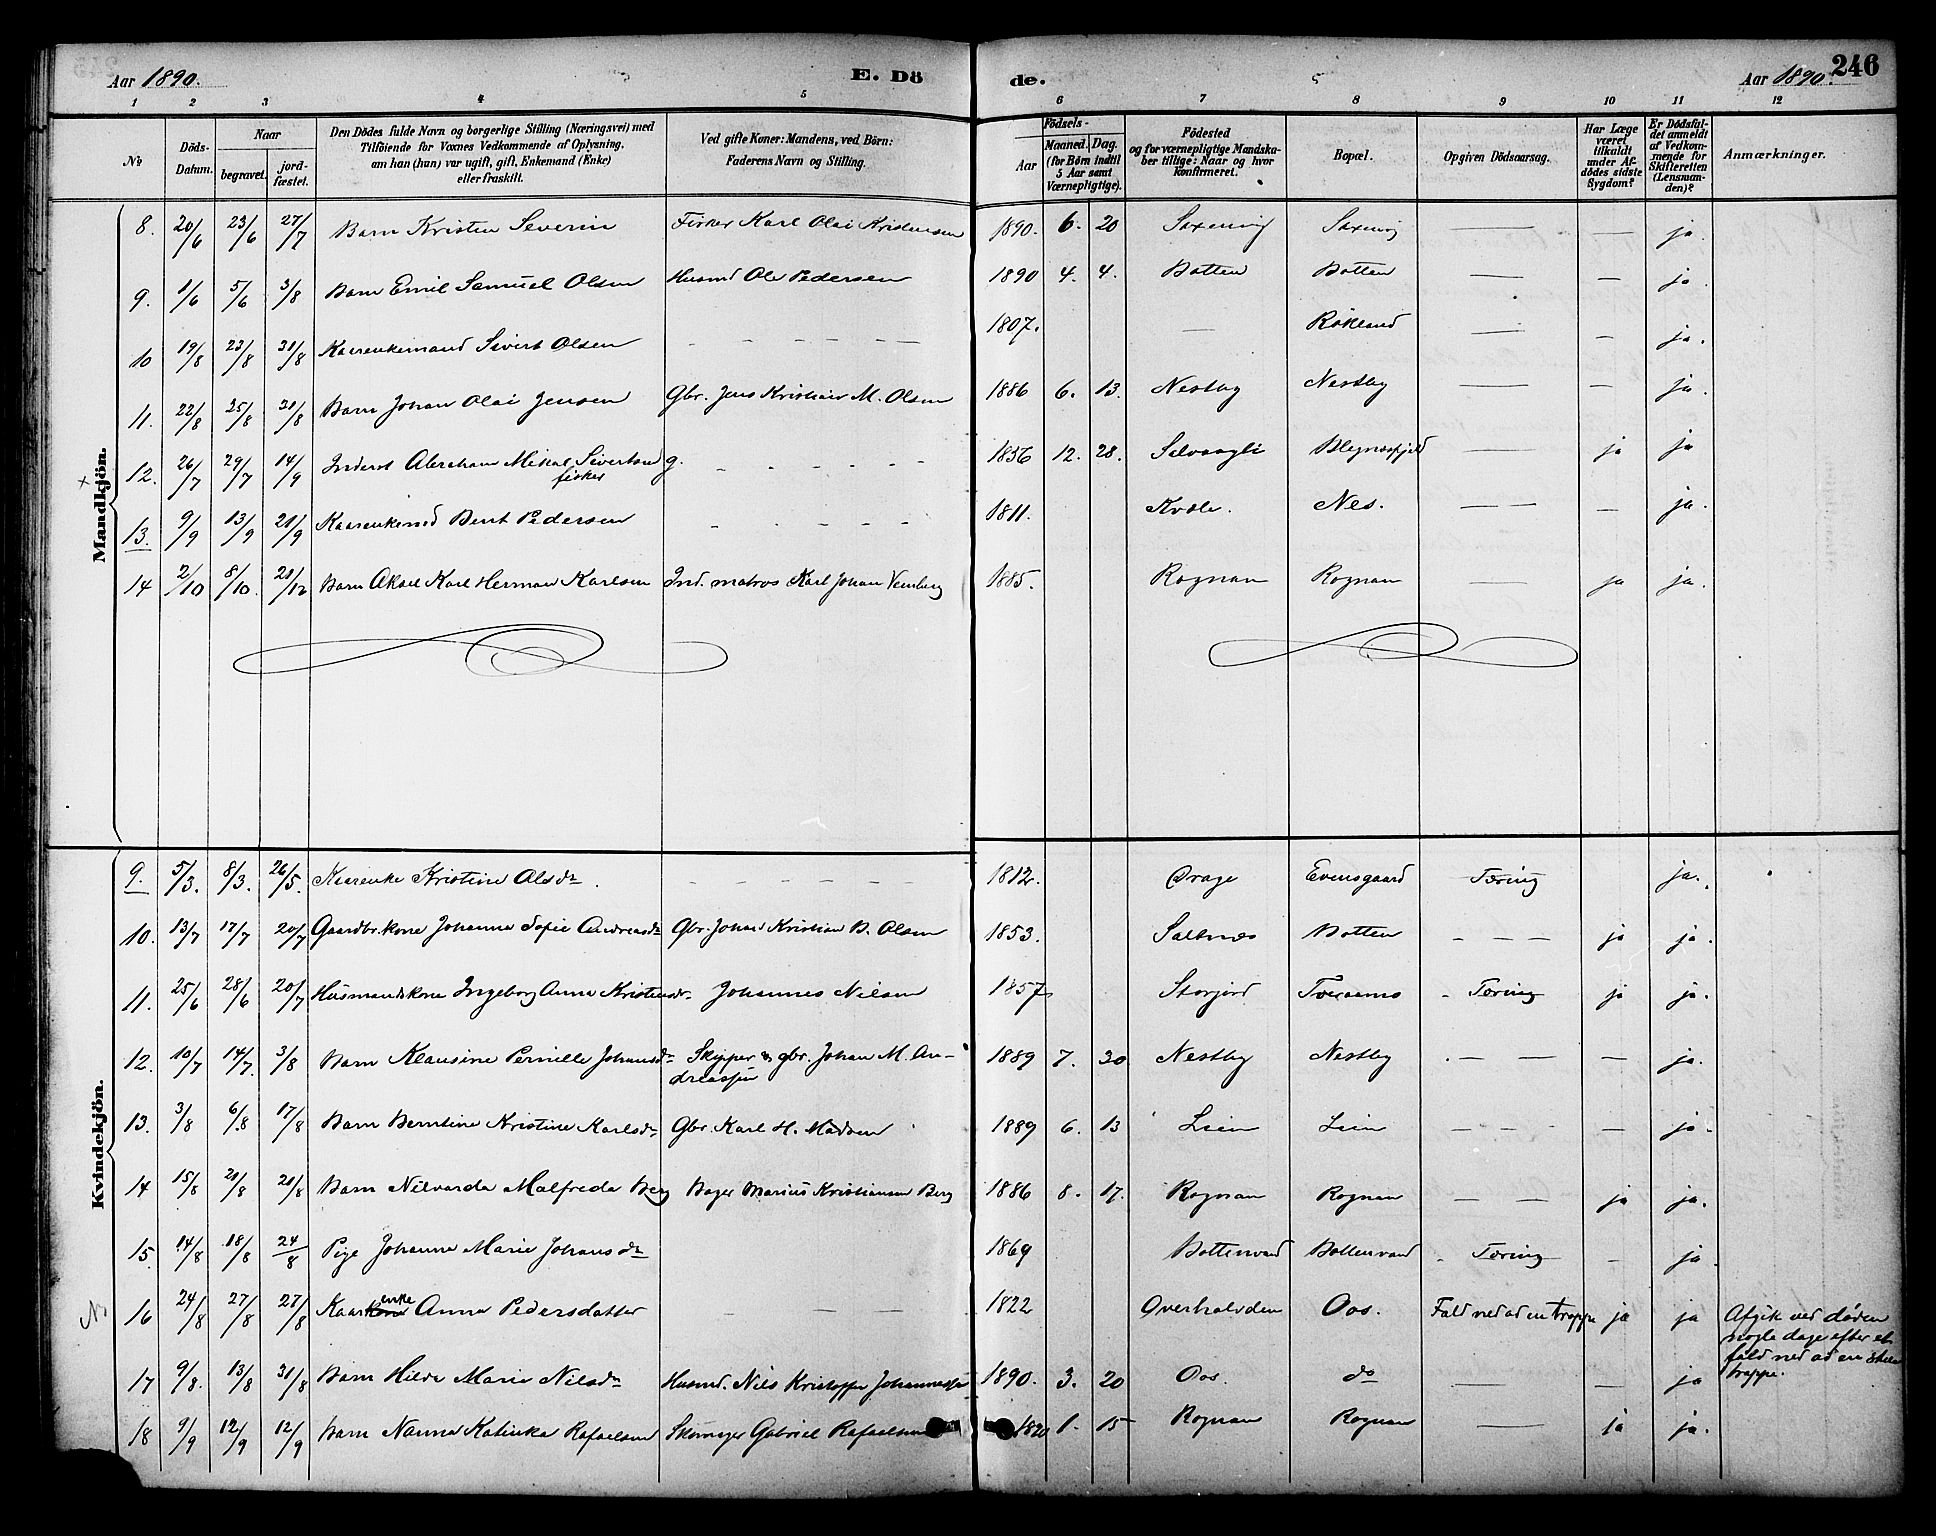 Aar 1890. E. Dö de. Aar 1890. 246
1 2 3 4 5 6 7 8 9 10 11 12
No Döds-Datum. Naar begravet. jordfæstet. Den Dödes fulde Navn og borgerlige Stilling (Næringsvei) med Tilföiende for Voxnes Vedkommende af Oplysning, om han (hun) var ugift, gift, Enkemand (Enke) eller fraskilt. Ved gifte Koner: Mandens, ved Börn: Faderens Navn og Stilling. Födsels- Aar Maaned. Dag. (for Börn indtil 5 Aar samt Værnepligtige). Födested og for værnepligtige Mandskaber tillige: Naar og hvor konfirmeret. Bopæl. Opgiven Dödsaarsag. Har Læge været tilkaldt under Afdödes sidste Sygdom? Er Dödsfaldet anmeldt af Vedkommende for Skifteretten (Lensmanden)? Anmærkninger.
Mandkjön.
8. 20/6 23/6 27/7 Barn Kristen Severin Fisker Karl Olai Kristensen 1890. 6. 20 Saxenvig Saxenvig — — ja.
9. 1/6 5/6 3/8 Barn Emil Samuel Olsen Husmd Ole Pedersen 1890 4. 4. Botten Botten — — ja.
10 19/8 23/8 31/8 Kaarenkemand Sivert Olsen - - - - - 1807. — Rökland — — ja.
11. 22/8 25/8 31/8 Barn Johan Olai Jensen Gbr. Jens Kristian M. Olsen 1886 6. 13. Nestby Nestby — — ja.
12. 26/7 29/7 14/9 Inderst Abraham Mikal Sivertsen g. - - - - - 1856 12. 28. ja ja
fisker
13. 9/9 13/9 21/9 Kaarenkemd Bent Pedersen - - - - - 1811. Kvæle. Nes. — — ja.
14 2/10 8/10. 21/12 Barn Aksel Karl Herman Karlsen Ind. matros Karl Johan 1885. Rognan Rognan — ja ja.
Kvindekjön.
9. 5/3. 8/3. 26/5. Kaarenke Kristine Olsdr. - - - - - 1812. Drage Evensgaard Tæring ja.
10. 13/7 17/7 20/7 Gaardbr.kone Johanna Sofie Andreasdr Gbr. Johan Kristian B. Olsen 1853. Saltnes Botten - - - ja ja.
11. 25/6 28/6 20/7 Husmandskone Ingeborg Anna Kristensdr. Johannes Nilsen 1857 Storjord Tveraanes - Tæring ja ja.
12. 10/7 14/7. 3/8 Barn Klausine Pernille Johansdr Skipper og gbr. Johan M. An-
dreassen 1889 7. 30 Nestby Nestby - — — — ja.
13. 3/8 6/8 17/8 Barn Berntine Kristine Karlsdr Gbr. Karl H. Madsen 1889 6. 13 Lein Lein - - - — ja.
14 15/8 21/8 21/8 Barn Nilvarda Malfreda Berg Bager Marius Kristiansen Berg 1886 8. 17. Rognan Rognan — — ja ja.
15. 14/8 18/8 24/8 Pige Johanna Marie Johansdr 1869 Bottenvand Bottenvand - Tæring - ja
16 24/8 27/8 27/8 Kaarenke Anna Pedersdatter — — — 1822 Overhalvden Oos. Fald ned ad en trappe ja ja Afgik ved døden
nogle dage efter et
fald ned ad en
trappe.
17 9/8. 13/8 31/8 Barn Hilda Marie Nilsdr Husmd. Nils Kristoffer Johannessen 1890. 3. 20 Oos. do — — ja
18 9/9 12/9 12/9 Barn Nanna Katinka Rafaelsen Skomager Gabriel Rafaelsen 1890 1. 15 Rognan Rognan — ja ja.